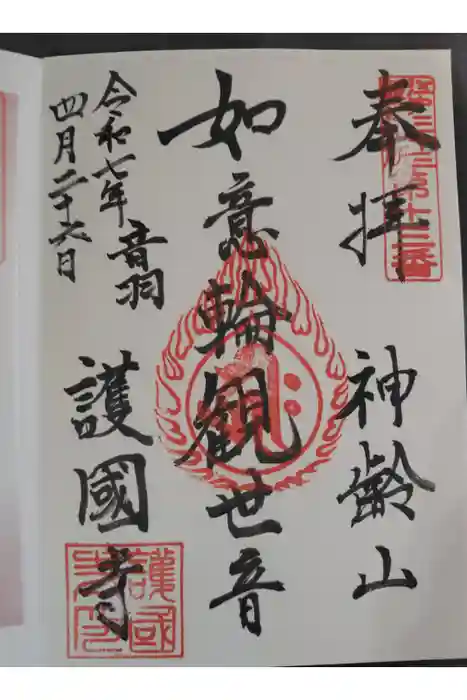 第十三番
奉拝
神齢山
如意輪觀世音
音羽
護國寺
令和七年
四月二十六日
護國